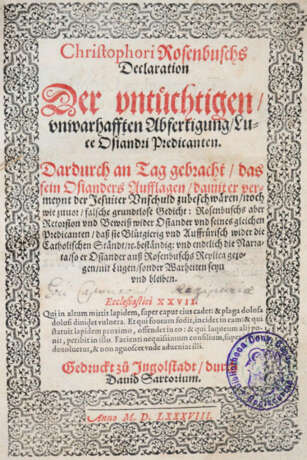 Christophori Rosenbuschs
Declaration
Der vntüchtigen/
vnwarhafften Abfertigung/Lu-
ce Osiandri Predicanten.
Dardurch an Tag gebracht/ das
sein Osianders Aufflagen/ damit er ver-
meynt der Jesuiter Vnschuld zubeschwären/ noch
wie zuuor/ falsche grundtlose Gedicht: Rosenbuschs aber
Retorsion vnd Beweiß wider Osiander vnd seines gleichen
Predicanten/ daß sie Blůtgierig vnd Auffrürisch wider die
Catholischen Ständt/ &c. beständig: vnd endtlich die Narra-
ta/ so er Osiander auß Rosenbuschs Replica gezo-
gen/ nit Lugen/ sonder Warheiten seyn
vnd bleiben.
Ecclesiastici XXVII.
Qui in altum mittit lapidem, super caput eius cadet: & plaga dolosa
dolosi diuidet vulnera. Et qui foueam fodit, incidet in eam: & qui
statuit lapidem proximo, offendet in eo: & qui laqueum alij po-
nit, peribit in illo. Facienti nequissimum consilium, super
deuoluetur, & non agnoscet vnde adueniat illi.
Gedruckt zů Ingolstadt/ durch
Dauid Sartorium.
Anno M. D. LXXXVIII.